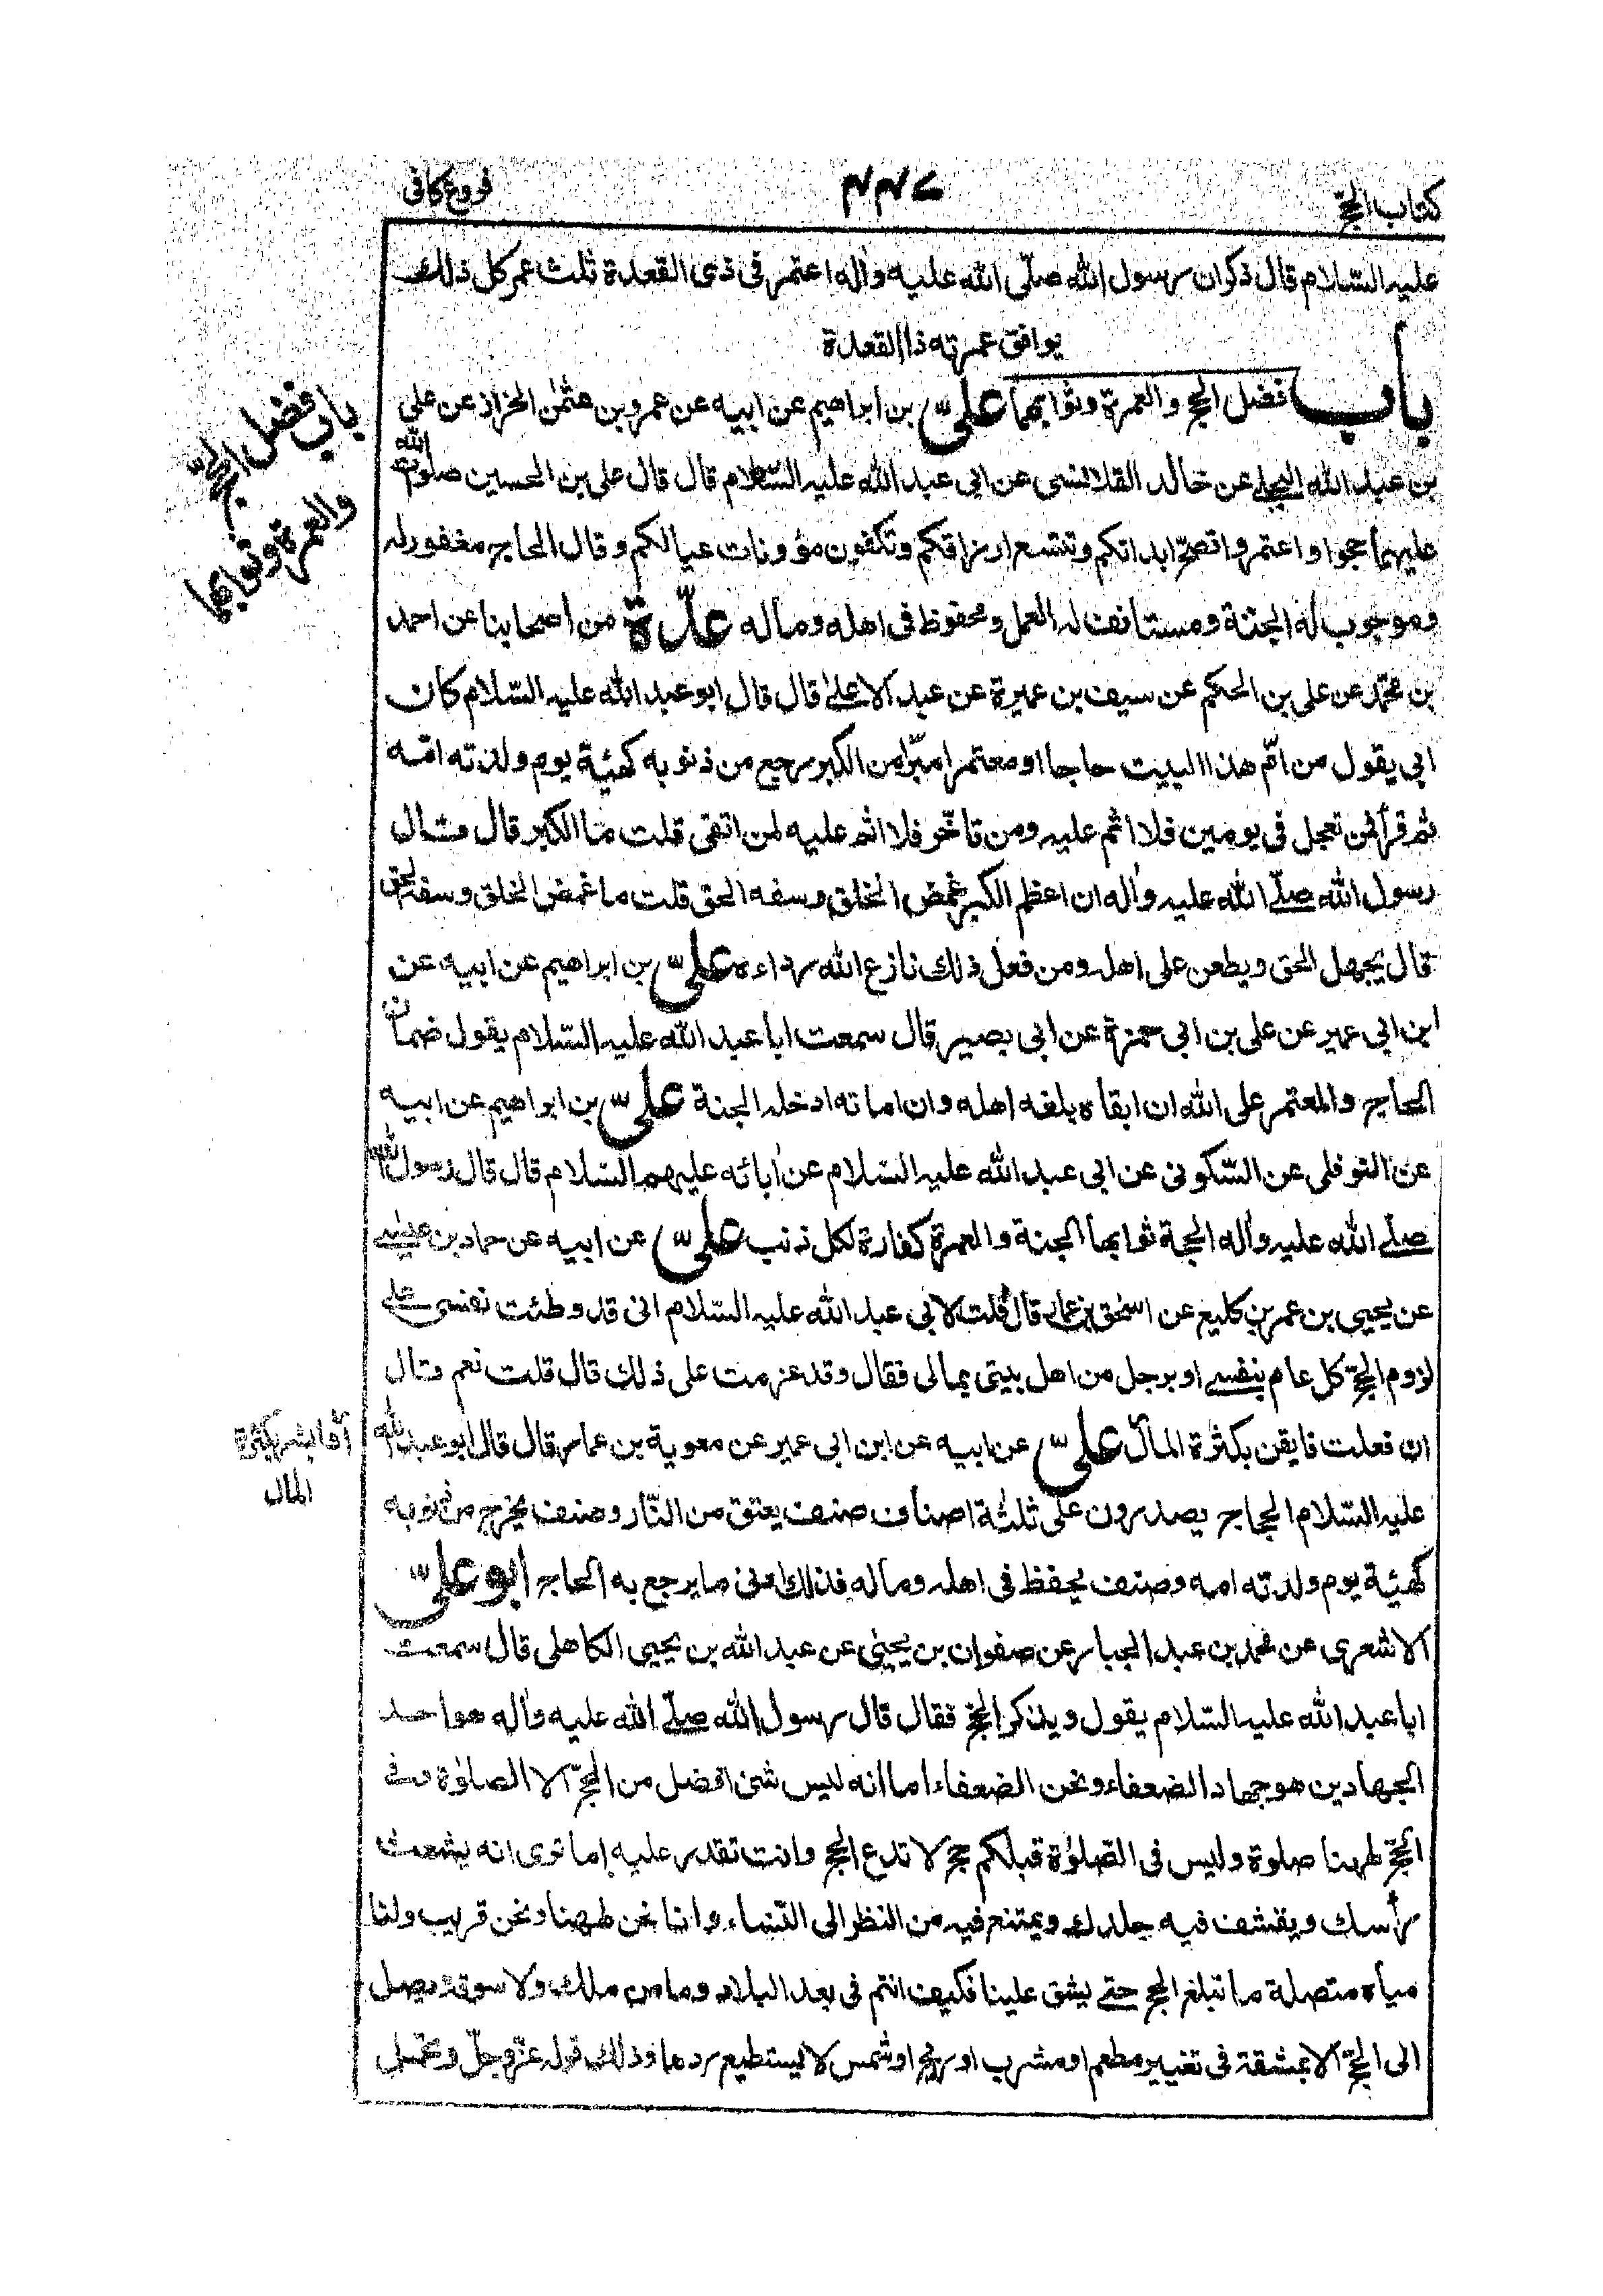 كتاب الحج
۴۴۷
فروع كافى
عليه السّلام قال ذكر ان رسول الله صلّى الله عليه واٰله اعتمر فى ذى القعدة ثلث عمر كل ذلك
يوافق عمرته ذا القعدة
باب فضل الحج والعمرة وثوابهما علىّ بن ابراهيم عن ابيه عن عمرو بن عثمٰن الخزاز عن على
بن عبد الله البجلے عن خالد القلانسى عن ابى عبد الله عليه السّلام قال قال على بن الحسين صلوات الله
عليهما حجوا واعتمروا تصحّ ابدانكم وتتسع ارزاقكم وتكفون مؤونات عيالكم وقال الحاج مغفور له
وموجوب له الجنة ومستانف له العمل ومحفوظ فى اهله وماله عدّة من اصحابنا عن احمد
بن محمّد عن على بن الحكم عن سيف بن عميرة عن عبد الاعلےٰ قال قال ابو عبد الله عليه السّلام كان
ابى يقول من امّ هذا البيت حاجا او معتمرا مبرّا من الكبر رجع من ذنوبه كهيئة يوم ولدته امّه
ثم قرأ فمن تعجل فى يومين فلا اثم عليه ومن تاخّر فلا اثم عليه لمن اتقى قلت ما الكبر قال قال
رسول الله صلّے الله عليه واٰله ان اعظم الكبر غمض الخلق وسفه الحق قلت ما غمض الخلق وسفه الحق
قال يجهل الحق ويطعن على اهله ومن فعل ذلك نازع الله رداءه علىّ بن ابراهيم عن ابيه عن
ابن ابى عمير عن على بن ابى حمزة عن ابى بصير قال سمعت ابا عبد الله عليه السّلام يقول ضمان
الحاج والمعتمر على الله ان ابقاه بلغه اهله وان اماته ادخله الجنة علىّ بن ابراهيم عن ابيه
عن النوفلى عن السّكونى عن ابى عبد الله عليه السّلام عن اٰبائه عليهم السّلام قال قال رسول الله
صلّے الله عليه واٰله الحجة ثوابها الجنة والعمرة كفارة لكل ذنب علىّ عن ابيه عن حماد بن عيسے
عن يحيى بن عمر بن كليع عن اسحٰق بن عمار قال قلت لابى عبد الله عليه السّلام انى قد وطئت نفسى علے
لزوم الحجّ كل عام بنفسے او برجل من اهل بيتى بمالى فقال وقد عزمت على ذلك قال قلت نعم قال
ان فعلت فايقن بكثرة المال علىّ عن ابيه عن ابن ابى عمير عن معوية بن عمار قال قال ابو عبد الله
عليه السّلام الحجاج يصدرون على ثلٰثة اصناف صنف يعتق من النّار وصنف يخرج من ذنوبه
كهيئة يوم ولدته امه وصنف يحفظ فى اهله وماله فذلك ادنى ما يرجع به الحاج ابو علىّ
الاشعرى عن محمد بن عبد الجبار عن صفوان بن يحيٰى عن عبد الله بن يحيى الكاهلى قال سمعت
ابا عبد الله عليه السّلام يقول ويذكر الحج فقال قال رسول الله صلّے الله عليه واٰله هو احد
الجهادين هو جهاد الضعفاء ونحن الضعفاء اما انه ليس شئ افضل من الحجّ الا الصلوٰة وفى
الحجّ لههنا صلوة وليس فى الصّلوٰة قبلكم حج لا تدع الحج وانت تقدر عليه اما ترى انه يشعث
رأسك ويقشف فيه جلدك ويمتنع فيه من النظر الى النّساء وانا نحن لههنا ونحن قريب ولنا
مياه متصلة ما تبلغ الحج حتے يشق علينا فكيف انتم فى بعد البلاد وما من ملك ولا سوقة يصل
الى الحجّ الا بمشقة فى تغيير مطعم او مشرب او ريح او شمس لا يستطيع ردها وذلك قوله عزّ وجلّ وتحمل
باب فضل الحجّ
والعمرة وثوابهما
المال